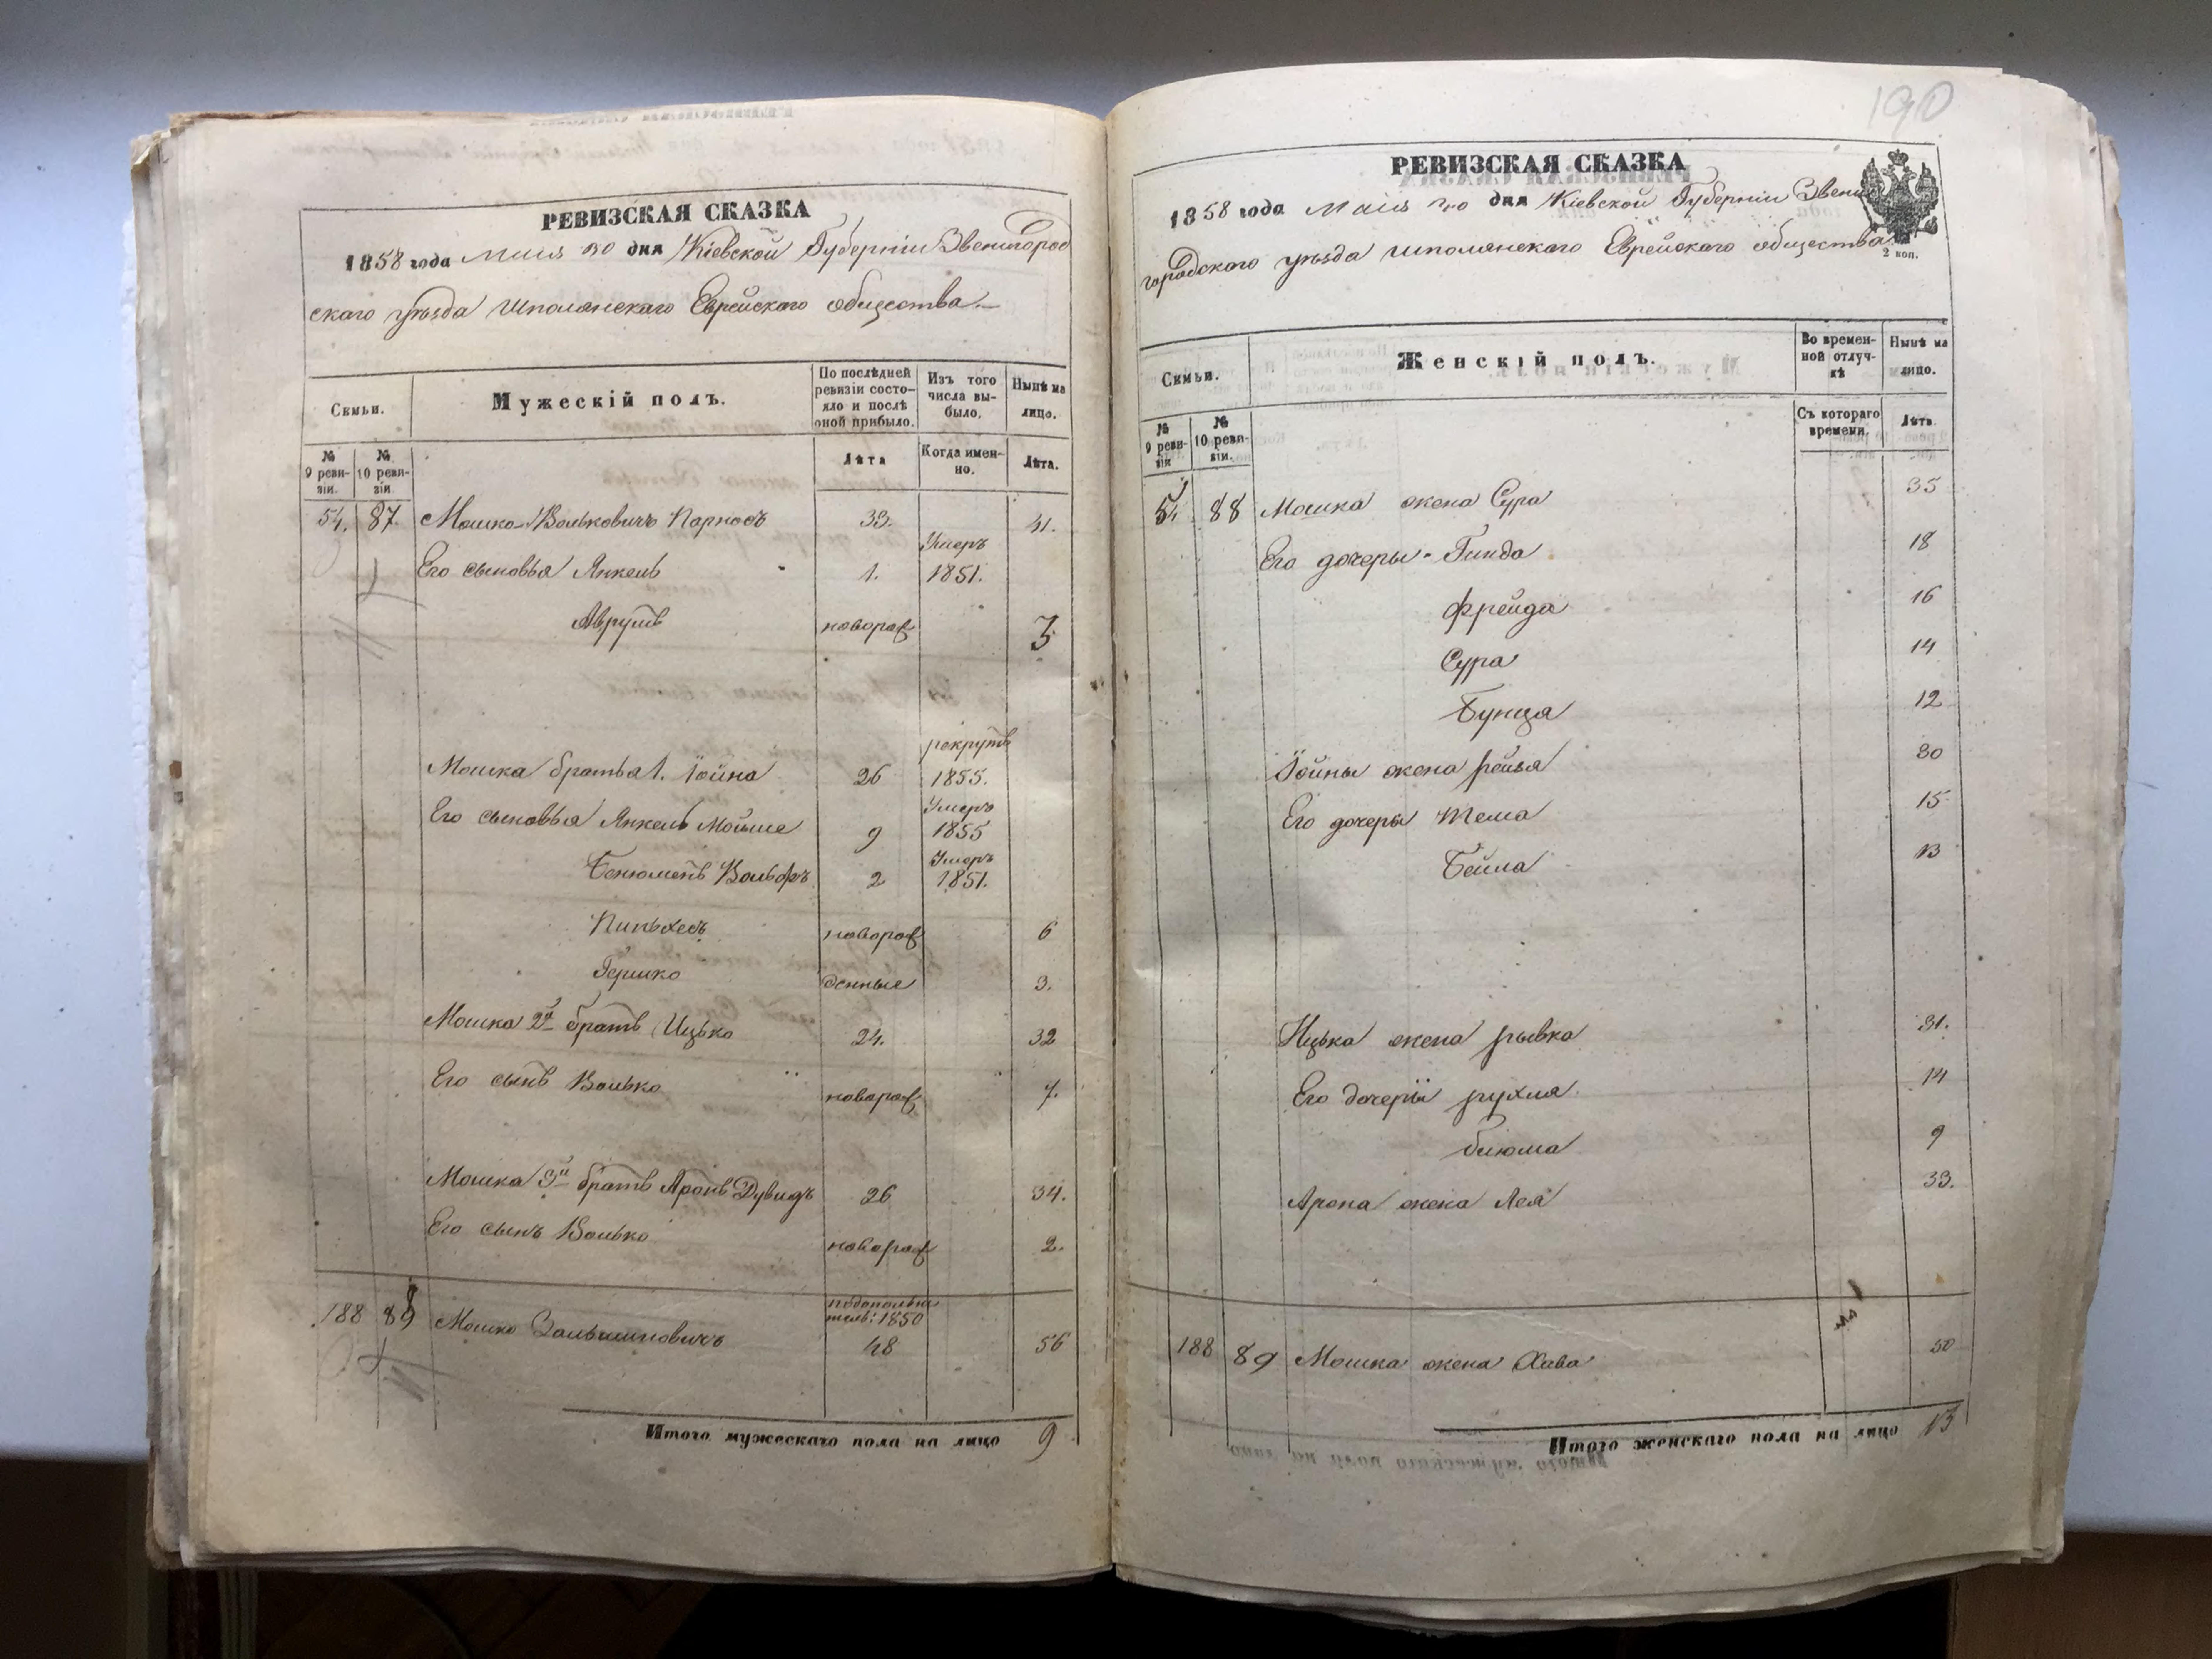 РЕВИЗСКАЯ СКАЗКА
1858 года Маія 30 дня Кіевской Губерніи Звенигород
скаго уѣзда Шполянскаго Еврейскаго общества
Семьи.
Мужескій полъ.
По послѣдней ревизіи состояло и послѣ оной прибыло.
Изъ того числа выбыло.
Нынѣ на лицо.
№ 9 ревизіи.
№ 10 ревизіи.
Лѣта
Когда именно.
Лѣта.
54. 87. Мошко Волькович 33. 41.
Умеръ
Его сыновья Янкель 1. 1851.
Аврумъ новорож 3
рекрутъ
Мошка братья 1. Іойна 26 1855.
Умеръ
Его сыновья Янкель Мойше 9 1855
Умеръ
Бенюменъ Вольфъ 2 1851.
Пиньхесъ новорож 6
Гершко денные 3.
Мошка 2й братъ Ицько 24. 32
Его сынъ Волько новорож 7.
Мошка 3й братъ Аронъ Дувидъ 26 34.
Его сынъ Волько новорож 2.
188 89 Мошко 1850
48 56
Итого мужескаго пола на лицо 9
190
РЕВИЗСКАЯ СКАЗКА
1858 года Маія 30 дня Кіевской Губерніи Звени
городского уѣзда Шполянскаго Еврейскаго общества
2 коп.
Семьи.
Женскій полъ.
Во временной отлучкѣ
Нынѣ на лицо.
№ 9 ревизіи
№ 10 ревизіи.
Съ котораго времени.
Лѣта
54 88 Мошка жена Сура 35
Его дочеры Гинда 18
Фрейда 16
Сура 14
Бунця 12
Іойны жена Рейзя 30
Его дочеры Тема 15
Бейла 13
Ицька жена Рывка 31.
Его дочери Рухля 14
Блюма 9
Арона жена Лея 33.
188 89 Мошка жена Хава 50
Итого женскаго пола на лицо 13